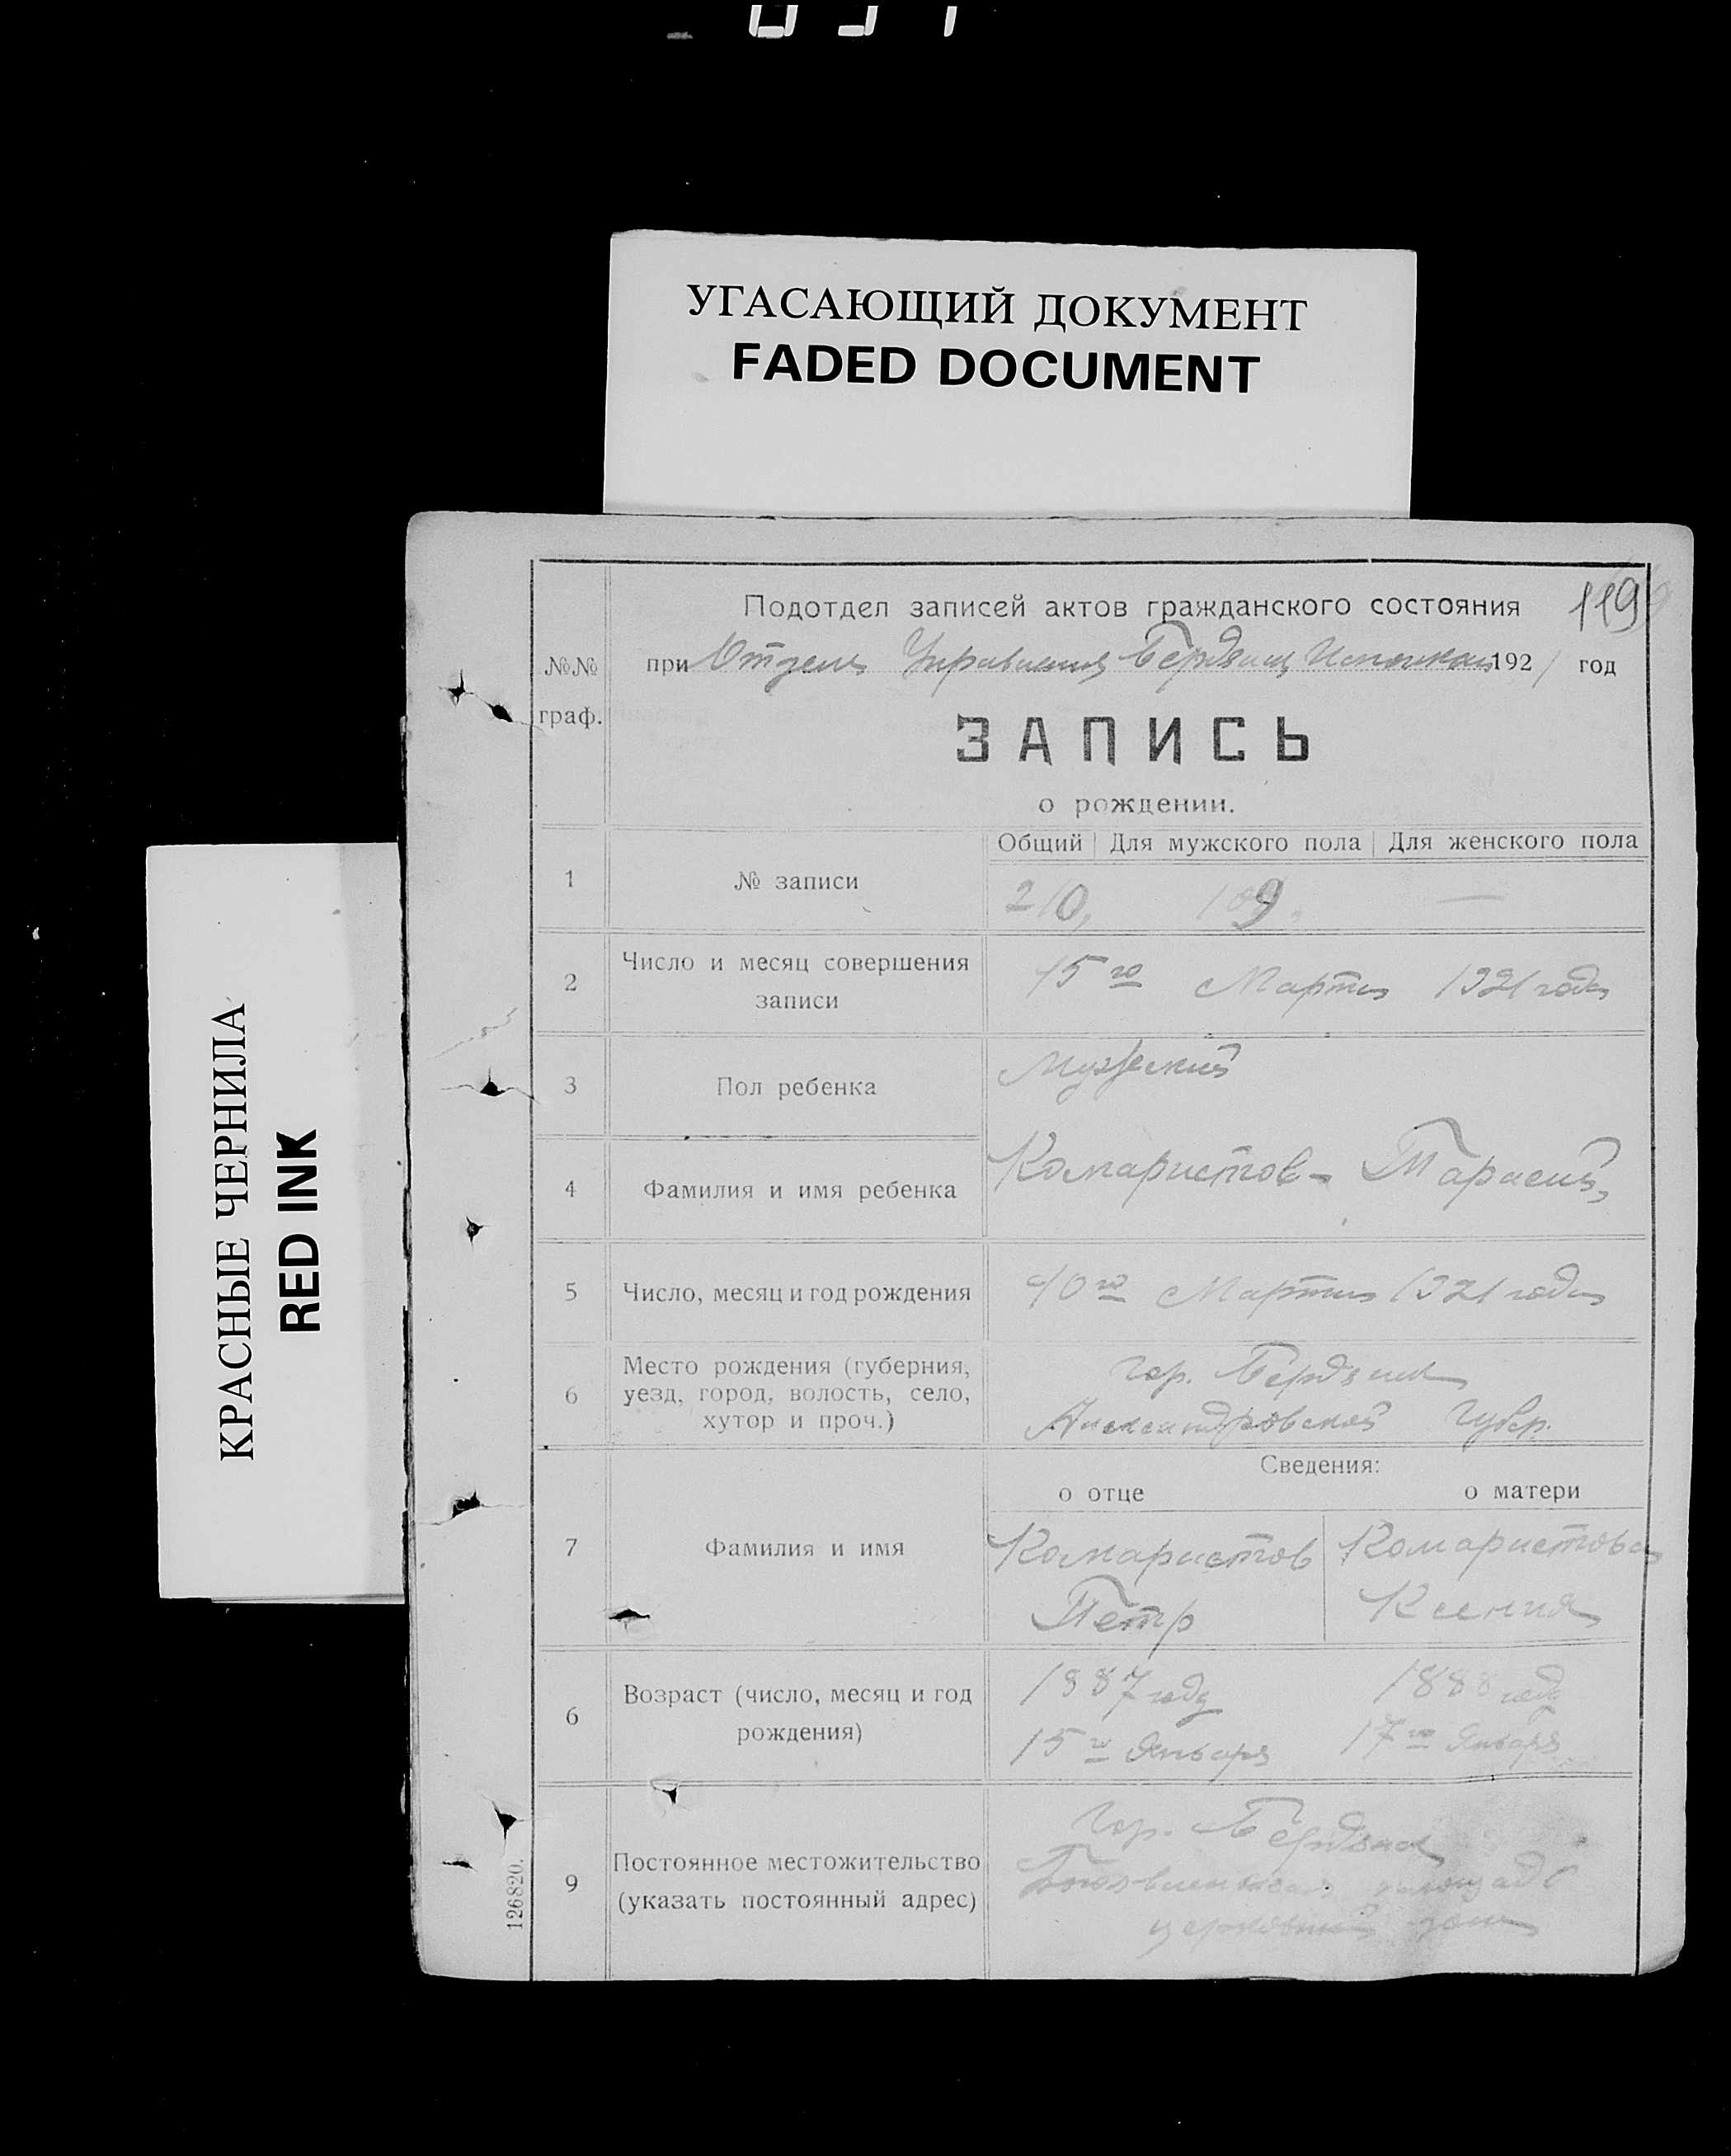 УГАСАЮЩИЙ ДОКУМЕНТ
FADED DOCUMENT
КРАСНЫЕ ЧЕРНИЛА
RED INK
119
Подотдел записей актов гражданского состояния
№№
граф.
при Отделе Управления Бердянск Исполкома 1921 год
ЗАПИСЬ
о рождении.
Общий Для мужского пола Для женского пола
1 № записи 210, 109. —
2 Число и месяц совершения
записи
15го Марта 1921 года
3 Пол ребенка Мужеский
4 Фамилия и имя ребенка Комаристов - Тарасий,
5 Число, месяц и год рождения 10го Марта 1921 года
6 Место рождения (губерния,
уезд, город, волость, село,
хутор и проч.)
гор. Бердянск
Александровской Губер.
Сведения:
о отце о матери
7 Фамилия и имя
Комаристов Комаристова
Петр Ксения
6 Возраст (число, месяц и год
рождения)
1887 году 1888 году
15го Января 17го Января
9 Постоянное местожительство
(указать постоянный адрес)
Гор. Бердянск
площадь
церковный дом
126820.